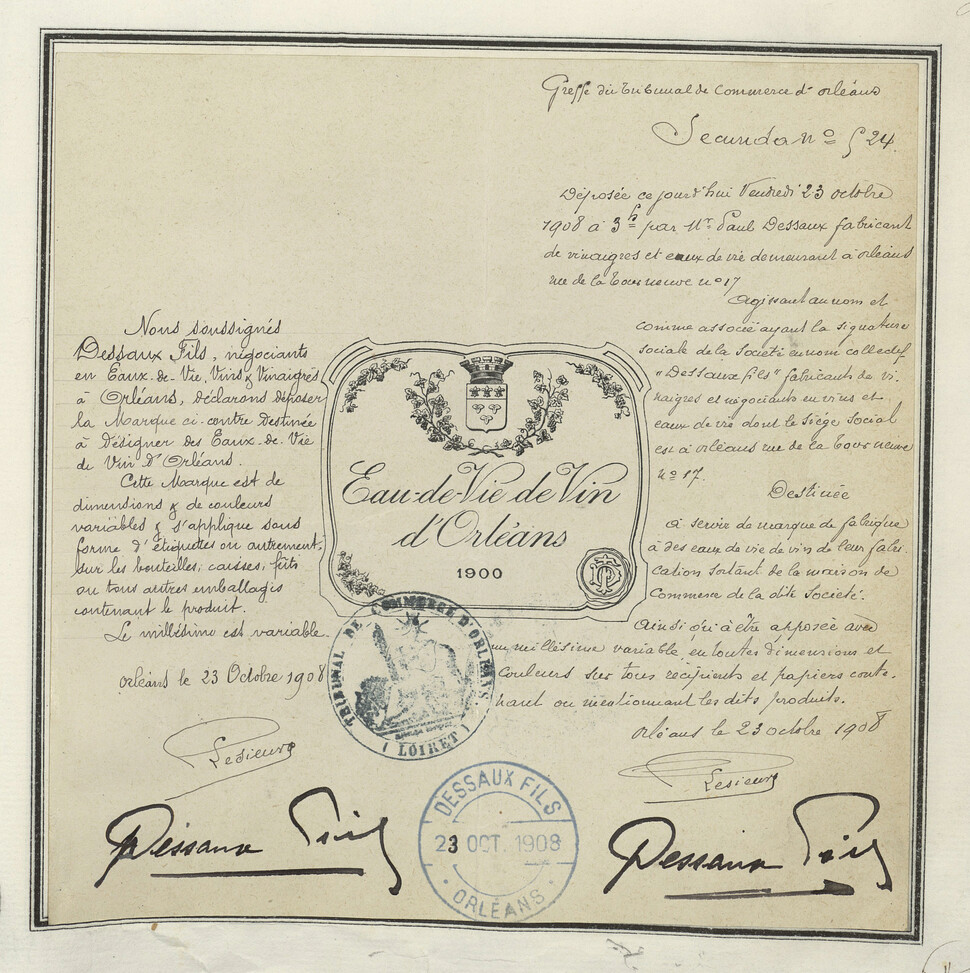 Greffe du Tribunal de Commerce d'Orléans
Secundo nº 524.
Déposée ce jourd'hui Vendredi 23 octobre
1908 à 3h par Mr. Paul Dessaux fabricant
de vinaigres et eaux de vie demeurant à orléans
rue de la Tour neuve nº 17
Agissant au nom et
comme associé ayant la signature
sociale de la Société en nom collectif
"Dessaux fils" fabricants de vi-
naigres et négociants en vins et
eaux de vie dont le Siége Social
est à orléans rue de la Tour neuve
nº 17.
Destinée
à servir de marque de fabrique
à des eaux de vie de vin de leur fabri-
cation sortant de la maison de
Commerce de la dite Société.
Ainsi qu'à être apposée avec
un millésime variable, en toutes dimensions et
couleurs sur tous récipients et papiers conte-
nant ou mentionnant les dits produits.
Orléans le 23 octobre 1908
Lesieure
Dessaux Fils
Nous soussignés
Dessaux Fils, négociants
en Eaux-de-Vie, Vins & Vinaigres
à Orléans, déclarons déposer
la Marque ci-contre Destinée
à Désigner des Eaux-de-Vie
de Vin D'Orléans.
Cette Marque est de
dimensions & de couleurs
variables & s'applique sous
forme d'étiquettes ou autrement,
sur les bouteilles, caisses, fûts
ou tous autres emballages
contenant le produit.
Le millésime est variable.
Orléans le 23 Octobre 1908
Lesieure
Dessaux Fils
Eau-de-Vie de Vin
d'Orléans
1900
TRIBUNAL DE COMMERCE D'ORLÉANS
(LOIRET)
DESSAUX FILS
23 OCT. 1908
ORLÉANS